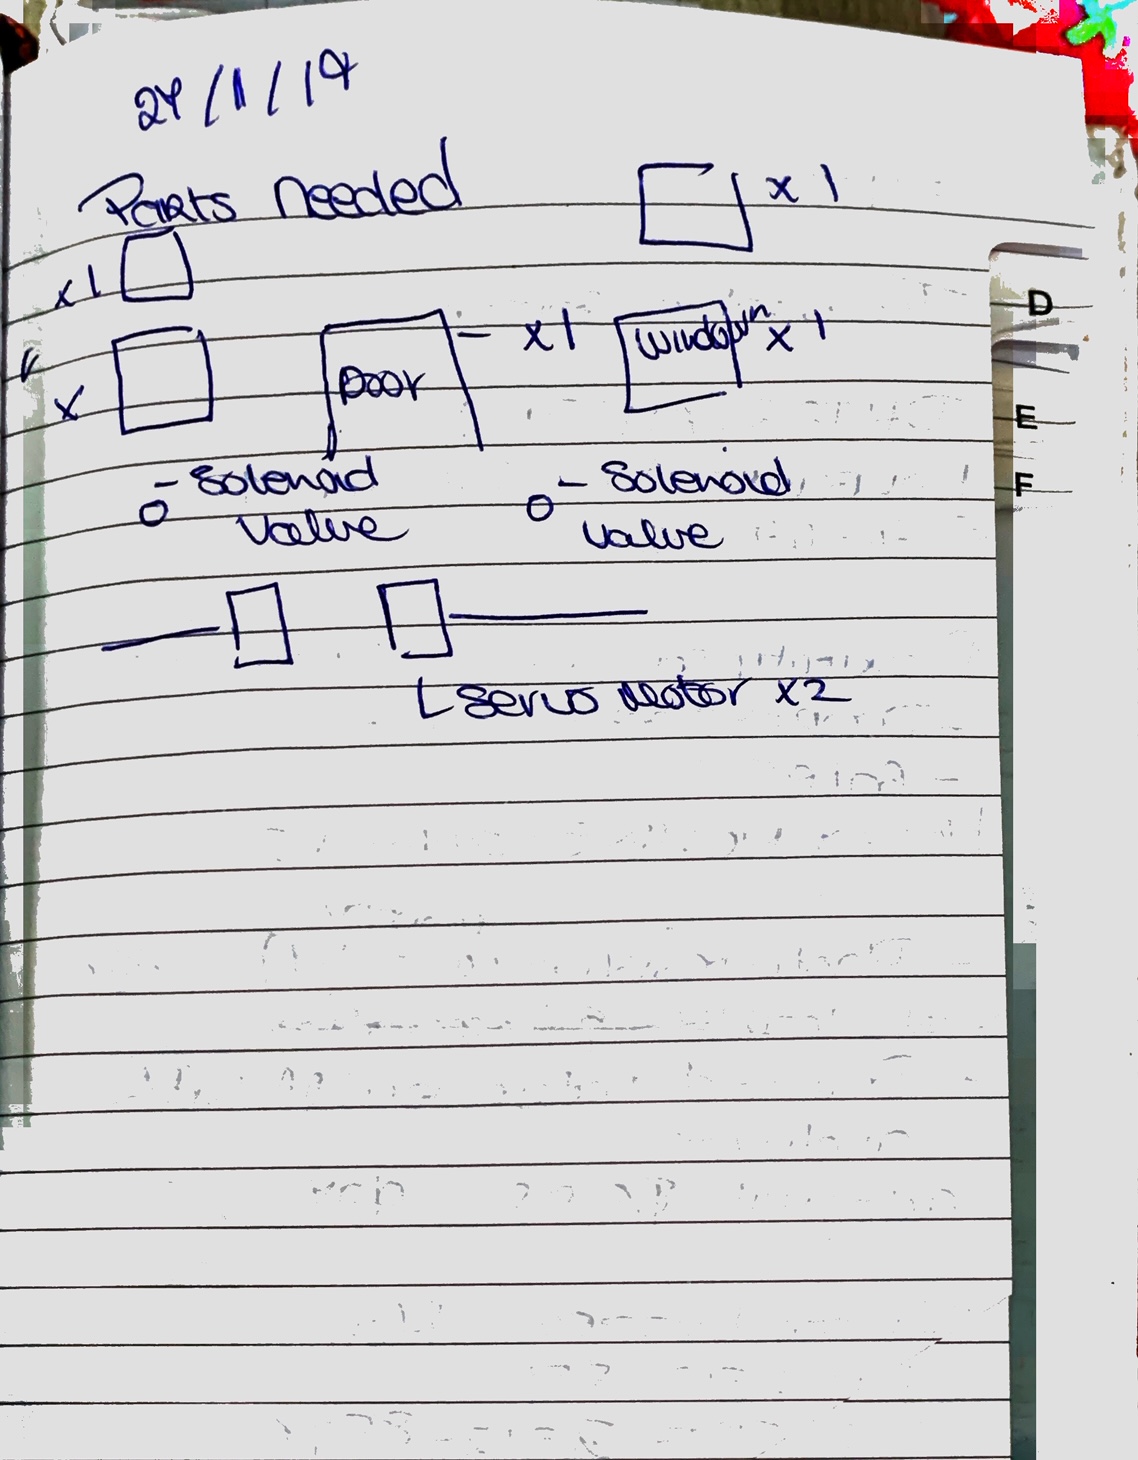 27/11/19
Parts needed
x 1
x 1
x 1
Door
window x 1
x
- Solenoid
valve
- Solenoid
valve
Servo motor x2
D
E
F